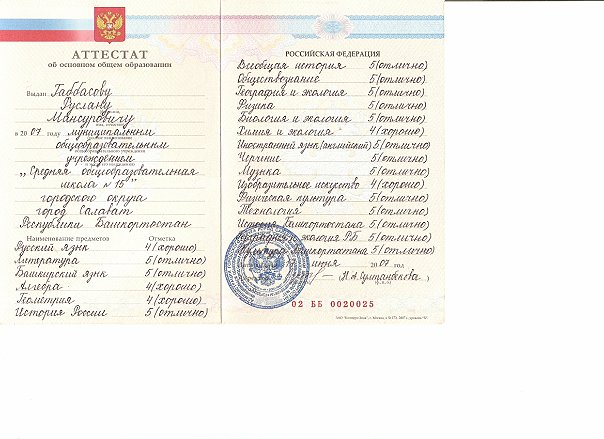 АТТЕСТАТ
об основном общем образовании
Выдан Габбасову
Руслану
Мансуровичу
в 2007 году муниципальным
общеобразовательным
учреждением
„Средняя общеобразовательная
школа №15"
городского округа
город Салават
Республики Башкортостан
Наименование предметов Отметка
Русский язык 4 (хорошо)
Литература 5 (отлично)
Башкирский язык 5 (отлично)
Алгебра 4 (хорошо)
Геометрия 4 (хорошо)
История России 5 (отлично)
РОССИЙСКАЯ ФЕДЕРАЦИЯ
Всеобщая история 5 (отлично)
Обществознание 5 (отлично)
География и экология 5 (отлично)
Физика 5 (отлично)
Биология и экология 5 (отлично)
Химия и экология 4 (хорошо)
Иностранный язык (английский) 5 (отлично)
Черчение 5 (отлично)
Музыка 5 (отлично)
Изобразительное искусство 4 (хорошо)
Физическая культура 5 (отлично)
Технология 5 (отлично)
История Башкортостана 5 (отлично)
География и экология РБ 5 (отлично)
Культура Башкортостана 5 (отлично)
июня 2007 год
02 ББ 0020025